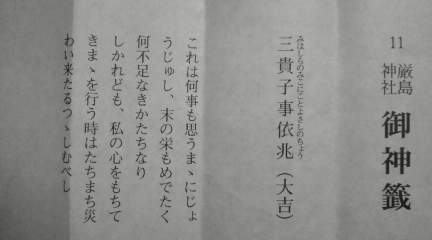 11
厳島
神社
御神籤
みはしらのみこにことよさしのちょう
三貴子事依兆（大吉）
これは何事も思うまゝにじょ
うじゅし、末の栄もめでたく
何不足なきかたちなり
しかれども、私の心をもちて
きまゝを行う時はたちまち災
わい来たるつゝしむべし